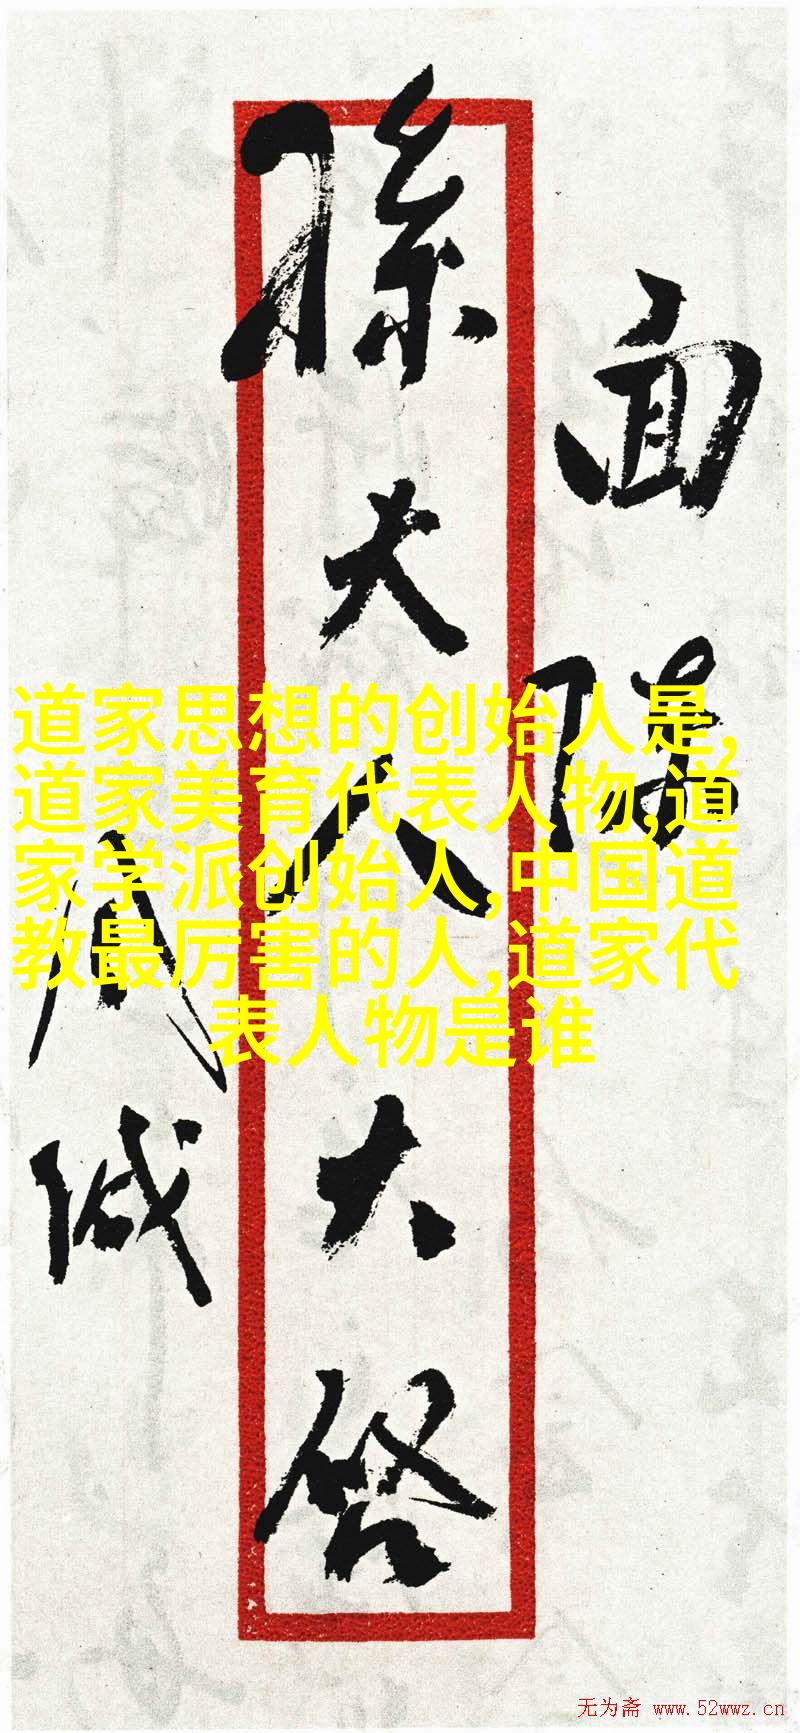 面陈
孫大人大启
道家思想的创始人是,
道家美育代表人物,道
家学派创始人,中国道
教最厉害的人,道家代
表人物是谁
无为斋 www.52wwz.cn